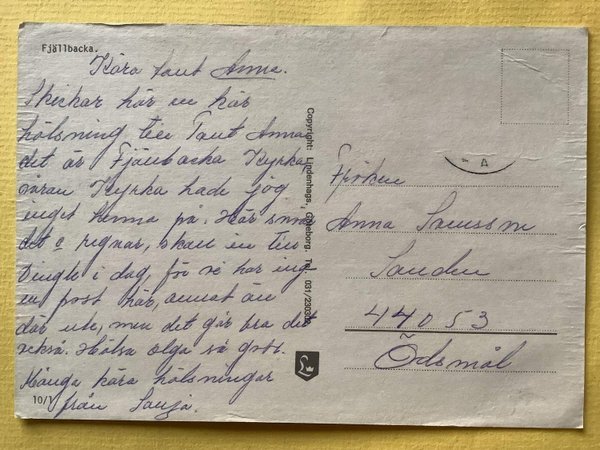 Fjällbacka.
Kära tant Anna.
Skickar här en kär
hälsning till Tant Anna
det är Fjällbacka Kyrka,
våran Kyrka hade jag
inget hemma på. Här snöar
det o regnar, skall en till
Dingle i dag, för vi har ing
en post här, annat än
där ute, men det går bra det
också. Hälsa Olga så gott.
Många kära hälsningar
från Sonja.
10/1
Copyright: Lindenhags, Göteborg. Tel. 031/
A
Fröken
Anna Svensson
Sanden
44053
Ödsmål